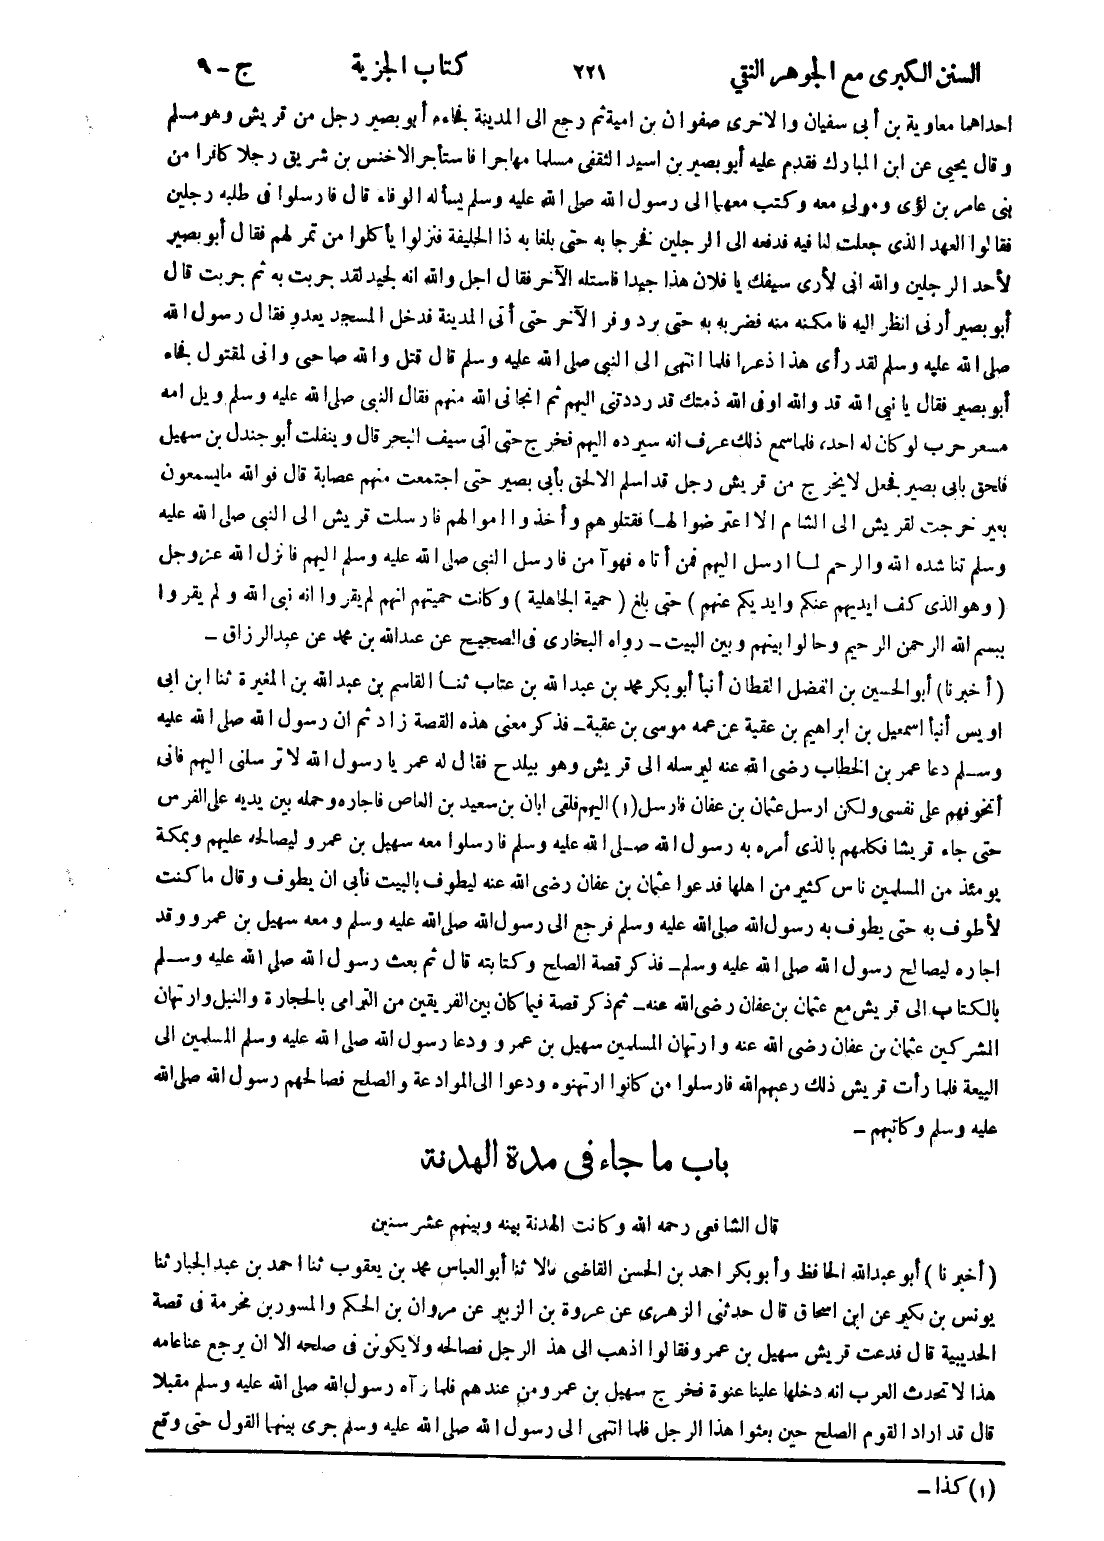 السنن الكبرى مع الجوهر النقي ٢٢١ كتاب الجزية ج – ٩
احداهما معاوية بن أبى سفيان والاخرى صفوان بن امية ثم رجع الى المدينة فجاءه أبو بصير رجل من قريش وهو مسلم
وقال يحيى عن ابن المبارك فقدم عليه أبو بصير بن اسيد الثقفى مسلما مهاجرا فاستأجر الاخنس بن شريق رجلا كافرا من
بنى عامر بن لؤى ومولى معه وكتب معهما الى رسول الله صلى الله عليه وسلم يسأله الوفاء قال فارسلوا فى طلبه رجلين
فقالوا العهد الذى جعلت لنا فيه فدفعه الى الرجلين فخرجا به حتى بلغا به ذا الحليفة فنزلوا يأكلوا من تمر لهم فقال أبو بصير
لأحد الرجلين والله انى لأرى سيفك يا فلان هذا جيدا فاستله الآخر فقال اجل والله انه لجيد لقد جربت به ثم جربت قال
أبو بصير أرنى انظر اليه فامكنه منه فضربه به حتى برد وفر الآخر حتى أتى المدينة فدخل المسجد يعدو فقال رسول الله
صلى الله عليه وسلم لقد رأى هذا ذعرا فلما انتهى الى النبي صلى الله عليه وسلم قال قتل والله صاحبى وانى لمقتول فجاء
أبو بصير فقال يا نبي الله قد والله اوفى الله ذمتك قد رددتنى اليهم ثم انجانى الله منهم فقال النبى صلى الله عليه وسلم ويل امه
مسعر حرب لو كان له احد، فلما سمع ذلك عرف انه سيرده اليهم فخرج حتى اتى سيف البحر قال وينفلت أبو جندل بن سهيل
فلحق بابى بصير فجعل لا يخرج من قريش رجل قد اسلم الا لحق بأبى بصير حتى اجتمعت منهم عصابة قال فو الله ما يسمعون
بعير خرجت لقريش الى الشام الا اعترضوا لها فقتلوهم وأخذوا اموالهم فارسلت قريش الى النبى صلى الله عليه
وسلم تناشده الله والرحم لما ارسل اليهم فمن أتاه فهو آمن فارسل النبى صلى الله عليه وسلم اليهم فانزل الله عز وجل
( وهو الذى كف ايديهم عنكم وايديكم عنهم ) حتى بلغ ( حمية الجاهلية ) وكانت حميتهم انهم لم يقروا انه نبى الله ولم يقروا
ببسم الله الرحمن الرحيم وحالوا بينهم وبين البيت – رواه البخارى فى الصحيح عن عبدالله بن محمد عن عبدالرزاق –
( أخبرنا ) أبو الحسين بن الفضل القطان أنبأ أبو بكر محمد بن عبد الله بن عتاب ثنا القاسم بن عبد الله بن المغيرة ثنا ابن ابى
اويس أنبأ اسمعيل بن ابراهيم بن عقبة عن عمه موسى بن عقبة – فذكر معنى هذه القصة زاد ثم ان رسول الله صلى الله عليه
وسلم دعا عمر بن الخطاب رضى الله عنه ليرسله الى قريش وهو ببلدح فقال له عمر يا رسول الله لا ترسلنى اليهم فانى
أتخوفهم على نفسى ولكن ارسل عثمان بن عفان فارسل (١) اليهم فلقى ابان بن سعيد بن العاص فاجاره وحمله بين يديه على الفرس
حتى جاء قريشا فكلمهم بالذى أمره به رسول الله صلى الله عليه وسلم فارسلوا معه سهيل بن عمرو ليصالحه عليهم وبمكة
يومئذ من المسلمين ناس كثير من اهلها فدعوا عثمان بن عفان رضى الله عنه ليطوف بالبيت فأبى ان يطوف وقال ما كنت
لأطوف به حتى يطوف به رسول الله صلى الله عليه وسلم فرجع الى رسول الله صلى الله عليه وسلم ومعه سهيل بن عمرو وقد
اجاره ليصالح رسول الله صلى الله عليه وسلم – فذكر قصة الصلح وكتابته قال ثم بعث رسول الله صلى الله عليه وسلم
بالكتاب الى قريش مع عثمان بن عفان رضى الله عنه – ثم ذكر قصة فيما كان بين الفريقين من الترامى بالحجارة والنبل وارتهان
المشركين عثمان بن عفان رضى الله عنه وارتهان المسلمين سهيل بن عمرو ودعا رسول الله صلى الله عليه وسلم المسلمين الى
البيعة فلما رأت قريش ذلك رعبهم الله فارسلوا من كانوا ارتهنوه ودعوا الى الموادعة والصلح فصالحهم رسول الله صلى الله
عليه وسلم وكاتبهم –
باب ما جاء فى مدة الهدنة
قال الشافعى رحمه الله وكانت الهدنة بينه وبينهم عشر سنين
( أخبرنا ) أبو عبدالله الحافظ وأبو بكر احمد بن الحسن القاضى قالا ثنا أبو العباس محمد بن يعقوب ثنا احمد بن عبد الجبار ثنا
يونس بن بكير عن ابن اسحاق قال حدثنى الزهرى عن عروة بن الزبير عن مروان بن الحكم والمسور بن مخرمة فى قصة
الحديبية قال فدعت قريش سهيل بن عمرو فقالوا اذهب الى هذ الرجل فصالحه ولا يكونن فى صلحه الا ان يرجع عنا عامه
هذا لا تحدث العرب انه دخلها علينا عنوة فخرج سهيل بن عمرو من عندهم فلما رآه رسول الله صلى الله عليه وسلم مقبلا
قال قد اراد القوم الصلح حين بعثوا هذا الرجل فلما انتهى الى رسول الله صلى الله عليه وسلم جرى بينهما القول حتى وقع
(١) كذا –